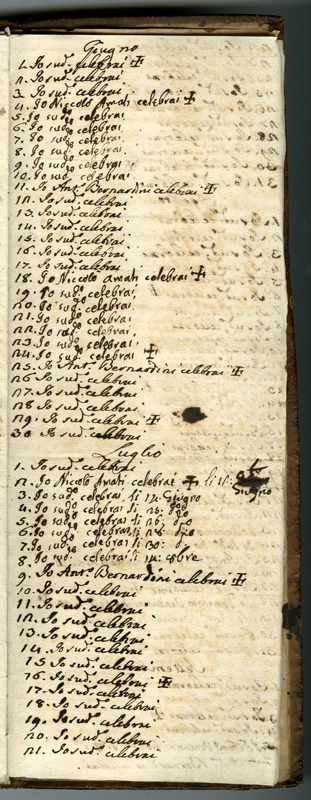 Giugno
1. Io sud.º celebrai ✠
2. Io sud.º celebrai
3. Io sud.º celebrai
4. Io Niccolo Amati celebrai ✠
5. Io sudº celebrai
6. Io sudº celebrai
7. Io sudº celebrai
8. Io sudº celebrai
9. Io sudº celebrai
10. Io sudº celebrai
11. Io Ant.º Bernardini celebrai ✠
12. Io sud.º celebrai
13. Io sud.º celebrai
14. Io sud.º celebrai
15. Io sud.º celebrai
16. Io sud.º celebrai
17. Io sud.º celebrai
18. Io Nicolo Amati celebrai ✠
19. Io sudº celebrai
20. Io sudº celebrai
21. Io sudº celebrai
22. Io sudº celebrai
23. Io sudº celebrai
24. Io sudº celebrai ✠
25. Io Ant.º Bernardini celebrai ✠
26 Io sud.º celebrai
27. Io sud.º celebrai
28 Io sud.º celebrai
29. Io sud.º celebrai ✠
30 Io sud.º celebrai
Luglio
1. Io sud.º celebrai
2. Io Nicolò Amati celebrai ✠ li 11:
Giugno
3. Io sudº celebrai li 12: Giugno
4. Io sudº celebrai li 25: dº
5. Io sudº celebrai li 26: dº
6. Io sudº celebrai li 28: dº
7. Io sudº celebrai li 30:
8. Io sudº celebrai li 14:
9. Io Ant.º Bernardini celebrai ✠
10. Io sud.º celebrai
11. Io sud.º celebrai
12. Io sud.º celebrai
13. Io sud.º celebrai
14. Io sud.º celebrai
15 Io sud.º celebrai
16. Io sud.º celebrai ✠
17. Io sud.º celebrai
18. Io sud.º celebrai
19. Io sud.º celebrai
20. Io sud.º celebrai
21. Io sud.º celebrai